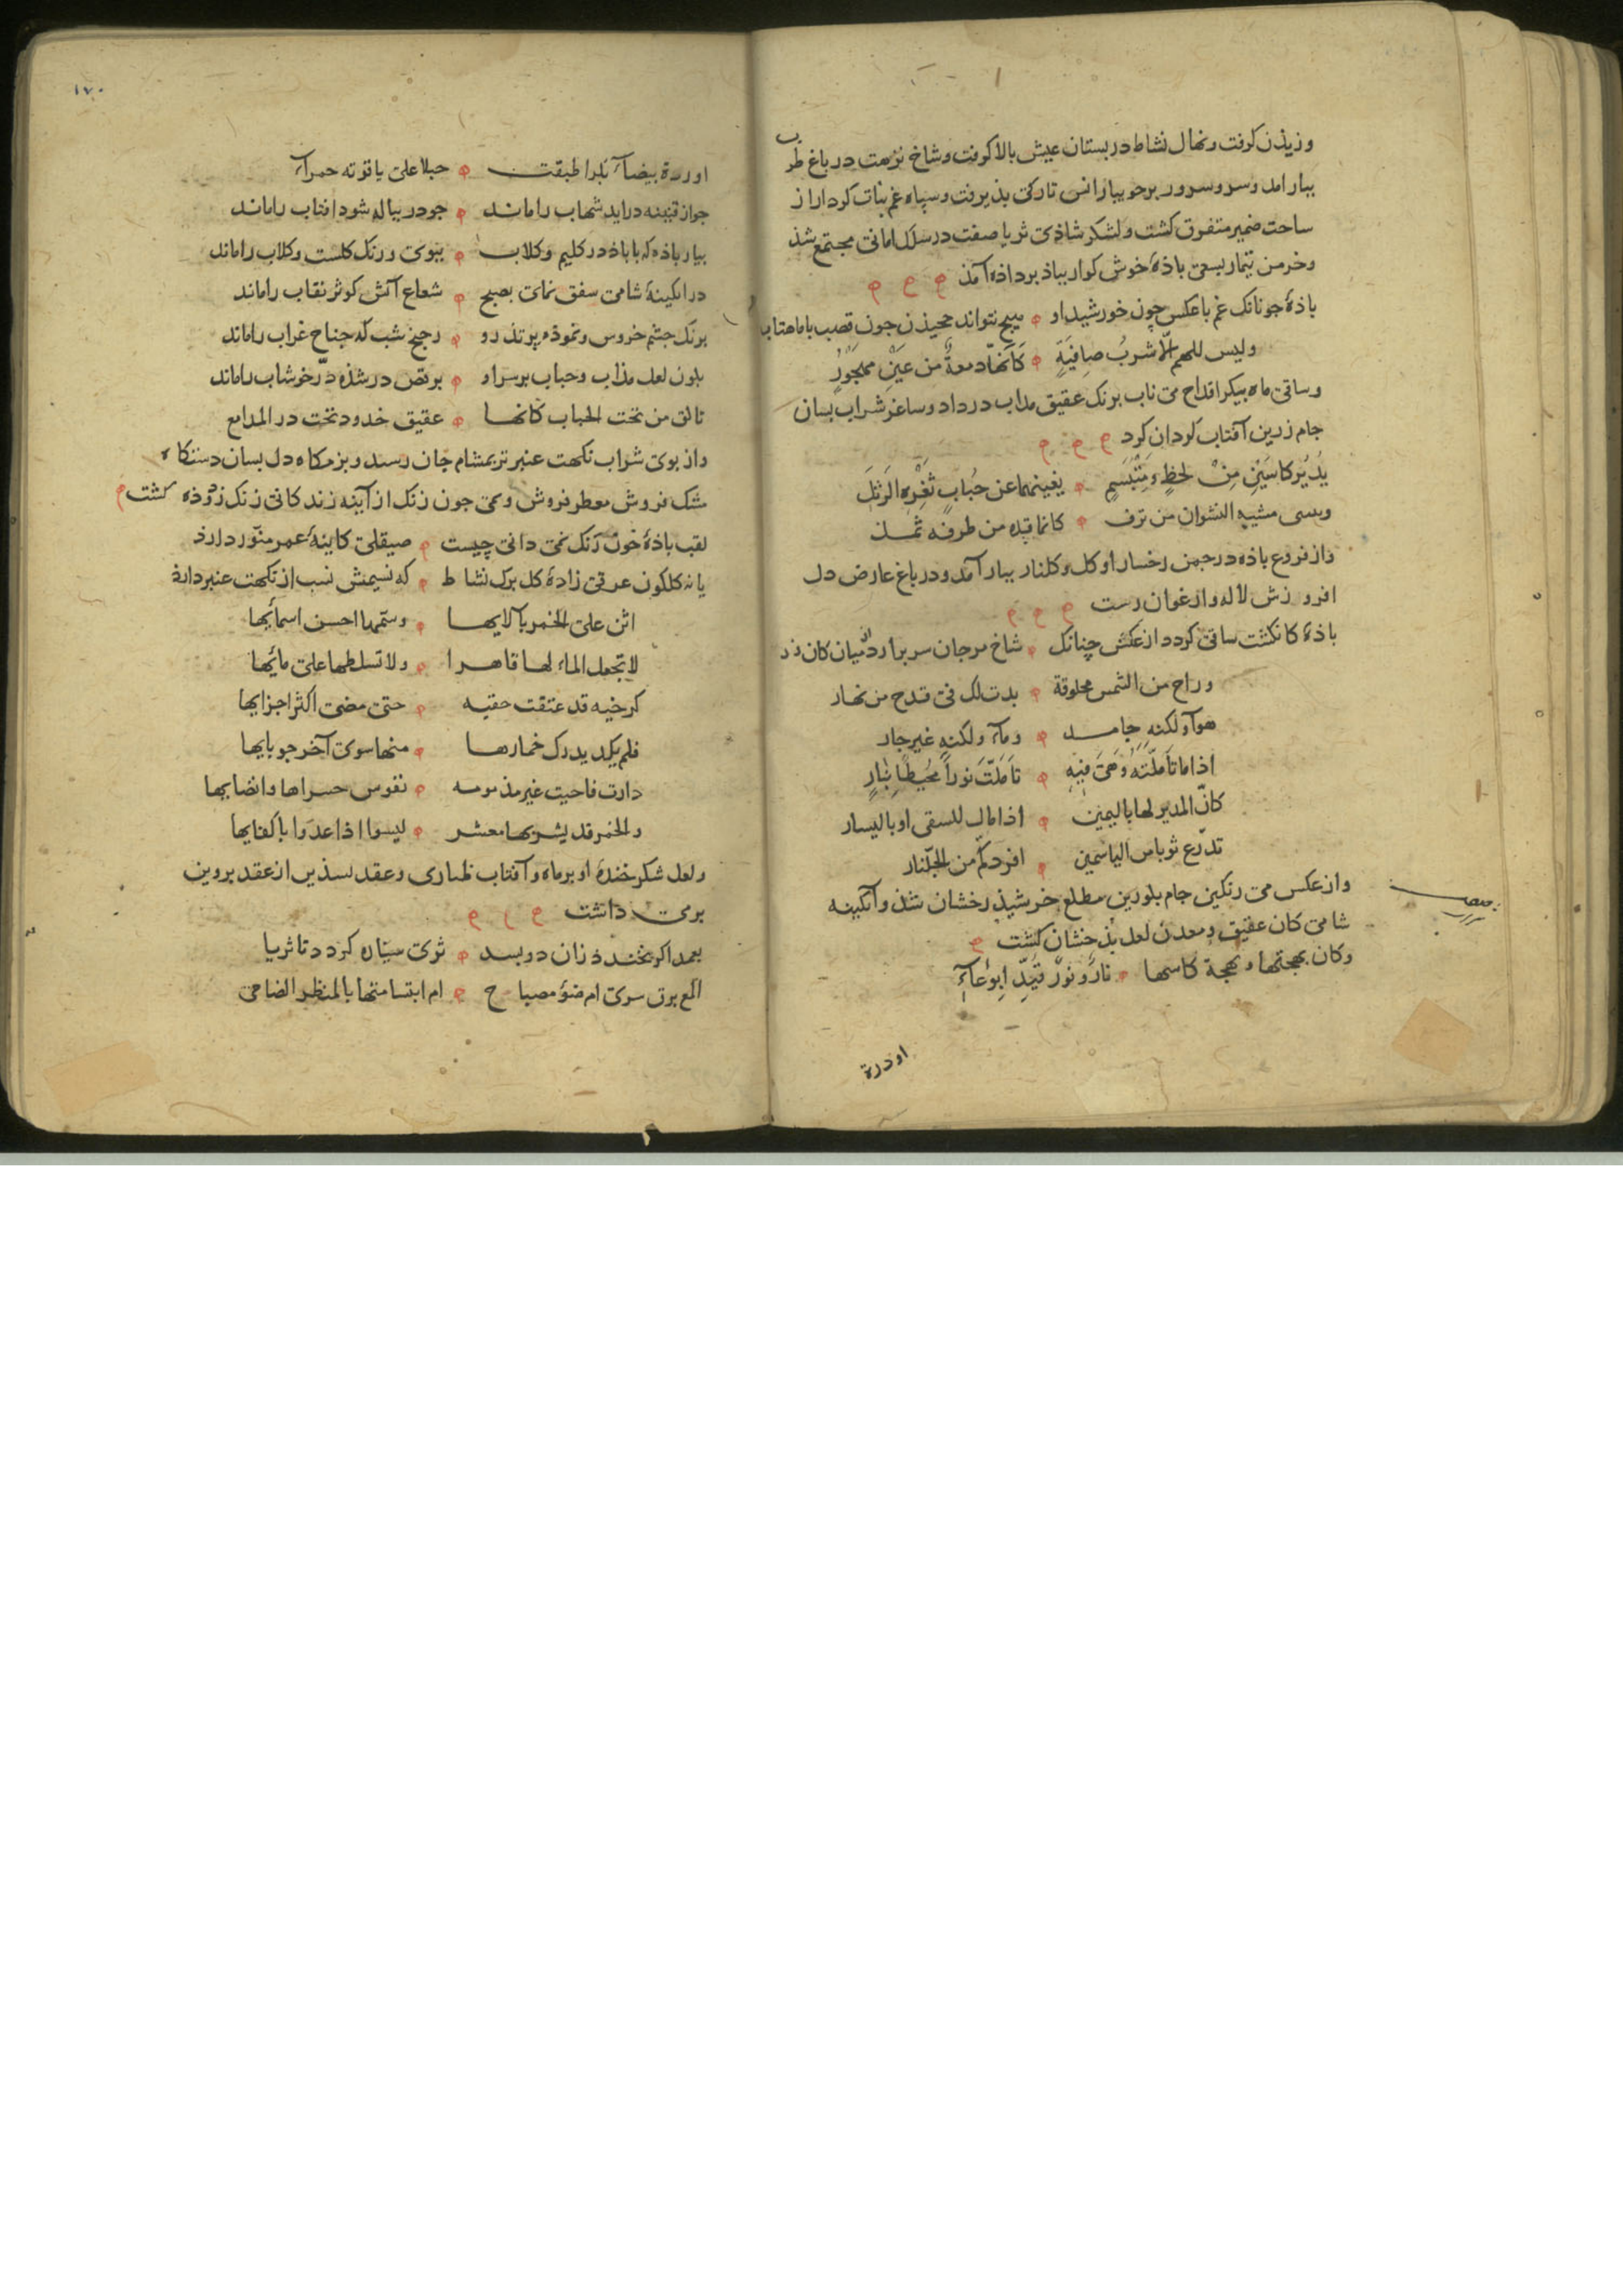 وزیذن کرفت ونهال نشاط در بستان عیش بالا کرفت وشاخ نزهت در باغ طرب
ببار امد وسرو سرور برجویبار انس تارکی بذیرفت وسپاه غم بنات کردار از
ساحت ضمیر متفرق کشت ولشکر شاذی ثریا صفت در سلک امانی مجتمع شذ
وخرمن تیمار بسعی باذهٔ خوش کوار بباذ برداذه آمذ
باذهٔ جونانک غم با عکس چون خورشید او هیچ نتواند مجیذن جون قصب با ماهتاب
ولیس للهم الّا شربُ صافیَةٍ کَاَنّهَا دمعةٌ من عَیْنِ مهجُورٍ
وساقی ماه بیکر اقداح می ناب برنک عقیق مذاب در داد وساغر شراب بسان
جام زرین آفتاب کردان کرد
یُدیُر کاسَیْنِ مِنْ لحظٍ وَمُبْتَسَمٍ یغینهما عن حُبابٍ ثَغْرِهِ الرَتِل
ویسی مشیه النشوان من ترف کانما قده من طرفه ثمل
واز فروع باذه در جمن رخسار او کل وکلنار ببار آمد ودر باغ عارض دل
افروزش لاله وارغوان رست
باذهٔ کانکشت ساقی کردد از عکش چنانک شاخ مرجان سر برارد از میان کان زر
وراح من الشمس مخلوقة بدت لک فی قدح من نهار
هوآ ولکنه جامد ومآء ولکنه غیر جار
اذا ما تاَملّتَهُ وَهیَ فِیهِ تاَمَلّتَ نوراً مُحیُطاً بِنارٍ
کانّ المدیر لها بالیمین اذا مال للسقی او بالیسار
تدّرع ثوبا من الیاسمین له فردکمّ من الجلّنار
واز عکس می رنکین جام بلورین مطلع خرشیذ رخشان شذ وآبکینه
شامی کان عقیق ومعدن لعل بذخشان کشت
وکان بهجتها وبهجة کاسها نارٌ ونورٌ قُیّدا بِوِعآءِ
اودرة
۱۷۰
اودرة بیضآء بکرا طبقت حبلا علی یاقوته حمرآء
جو از قنینه دراید شهاب را ماند جو در بیاله شود افتاب را ماند
بیار باذه که با باذ در کلیم وکلاب ببوی ورنک کلست وکلاب را ماند
در ابکینهٔ شامی شفق نمای بصبح شعاع آتش کوثر نقاب را ماند
برنک جشم خروس ونموذه پر تذرو رجنح شب که جناح غراب را ماند
بلون لعل مذاب وحباب بر سر او برقص در شذه درّ خوشاب را ماند
تالق من تحت الحباب کانها عقیق خدود تحت در المدامع
واز بوی شراب نکهت عنبر تر بمشام جان رسید وبزمکاه دل بسان دستکاه
مشک فروش معطر فروش ومی جون زنک از آینه زندکانی زنک زدوذه کشت
لقب باذهٔ خون رنک نمی دانی چیست صیقلی کاینهٔ عمر منوّر دارذ
یا نه کلکون عرقی زادهٔ کل برک نشاط که نسیمش نسب از نکهت عنبر دارذ
اثن علی الخمر بآلایها وسمّها احسن اسمائِها
لا تجعل الماء لها قاهرا ولا تسلطها علی مائِها
کرخیه قد عتقت حقبه حتی مضی اکثر اجزایها
فلم یکد یدرک خمارها منها سوی آخر حوبایها
دارت فاحیت غیر مذمومه نفوس حسراها وانضایها
والخمر قد یشربها معشر لیسوا اذا عدّوا باکفایها
ولعل شکر خندهٔ او بر ماه وآفتاب وعقد از عقد بروین
برمی داشت
بمه اکر بخندذ زان دو بسد ثری ستاره کردد تا ثریا
المع برق سری ام ضؤ مصباح ام ابتسامتها بالمنظر الضاحی